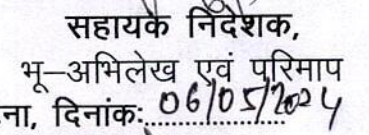 सहायक निदेशक,
भू–अभिलेख एवं परिमाप
ना, दिनांकः 06/05/2024